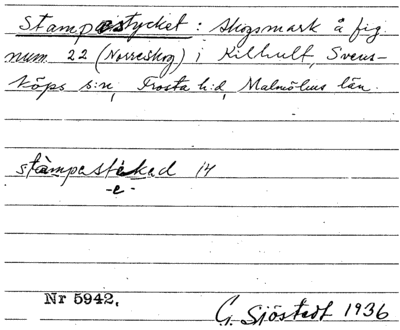 Stampestycket: skogsmark å fig.
num. 22 (Norreskog) i Killhult, Svens-
köps s:n, Frosta h:d, Malmöhus län.
stàmpastékad 14
-e-
Nr 5942.
G. Sjöstedt 1936